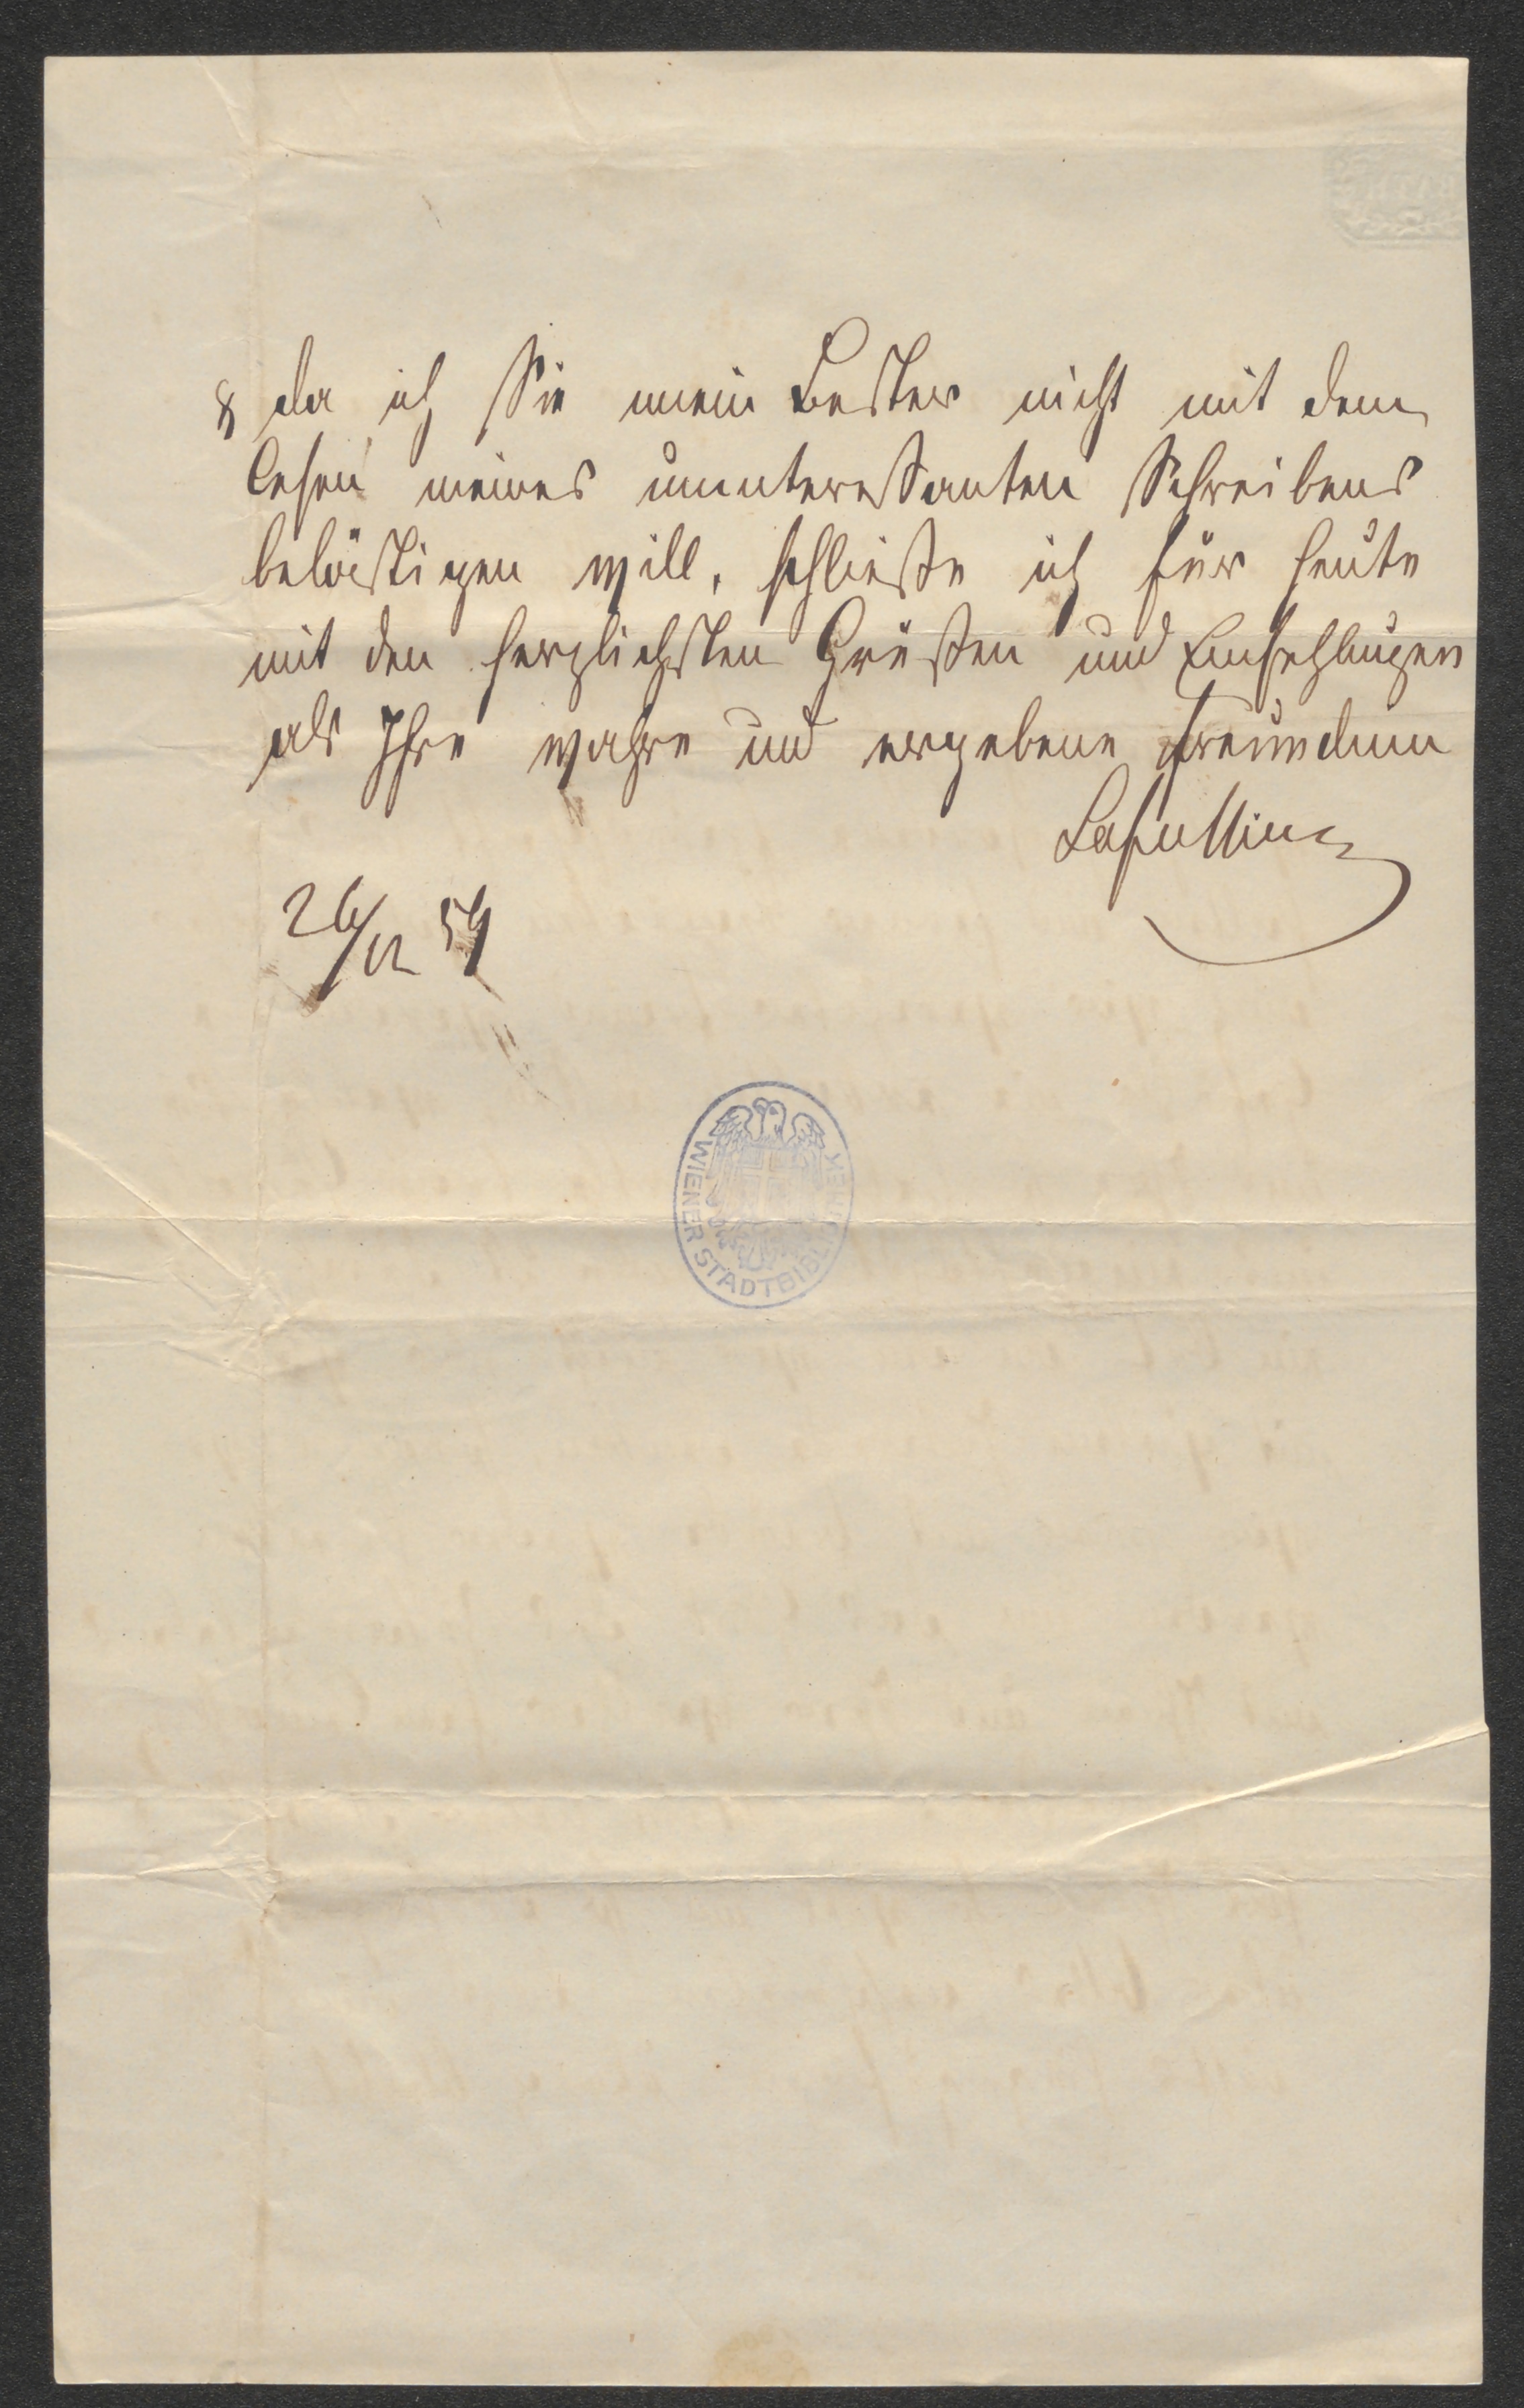 & da ich Sie mein Bester nicht mit dem
lesen meines uninteressanten Schreibens
belästigen will, schließe ich für heute
mit den herzlichsten Grüßen und Emfehlungen
als Ihre wahre und ergebene Freundinn
26/12 54
WIENER STADTBIBLIOTHEK